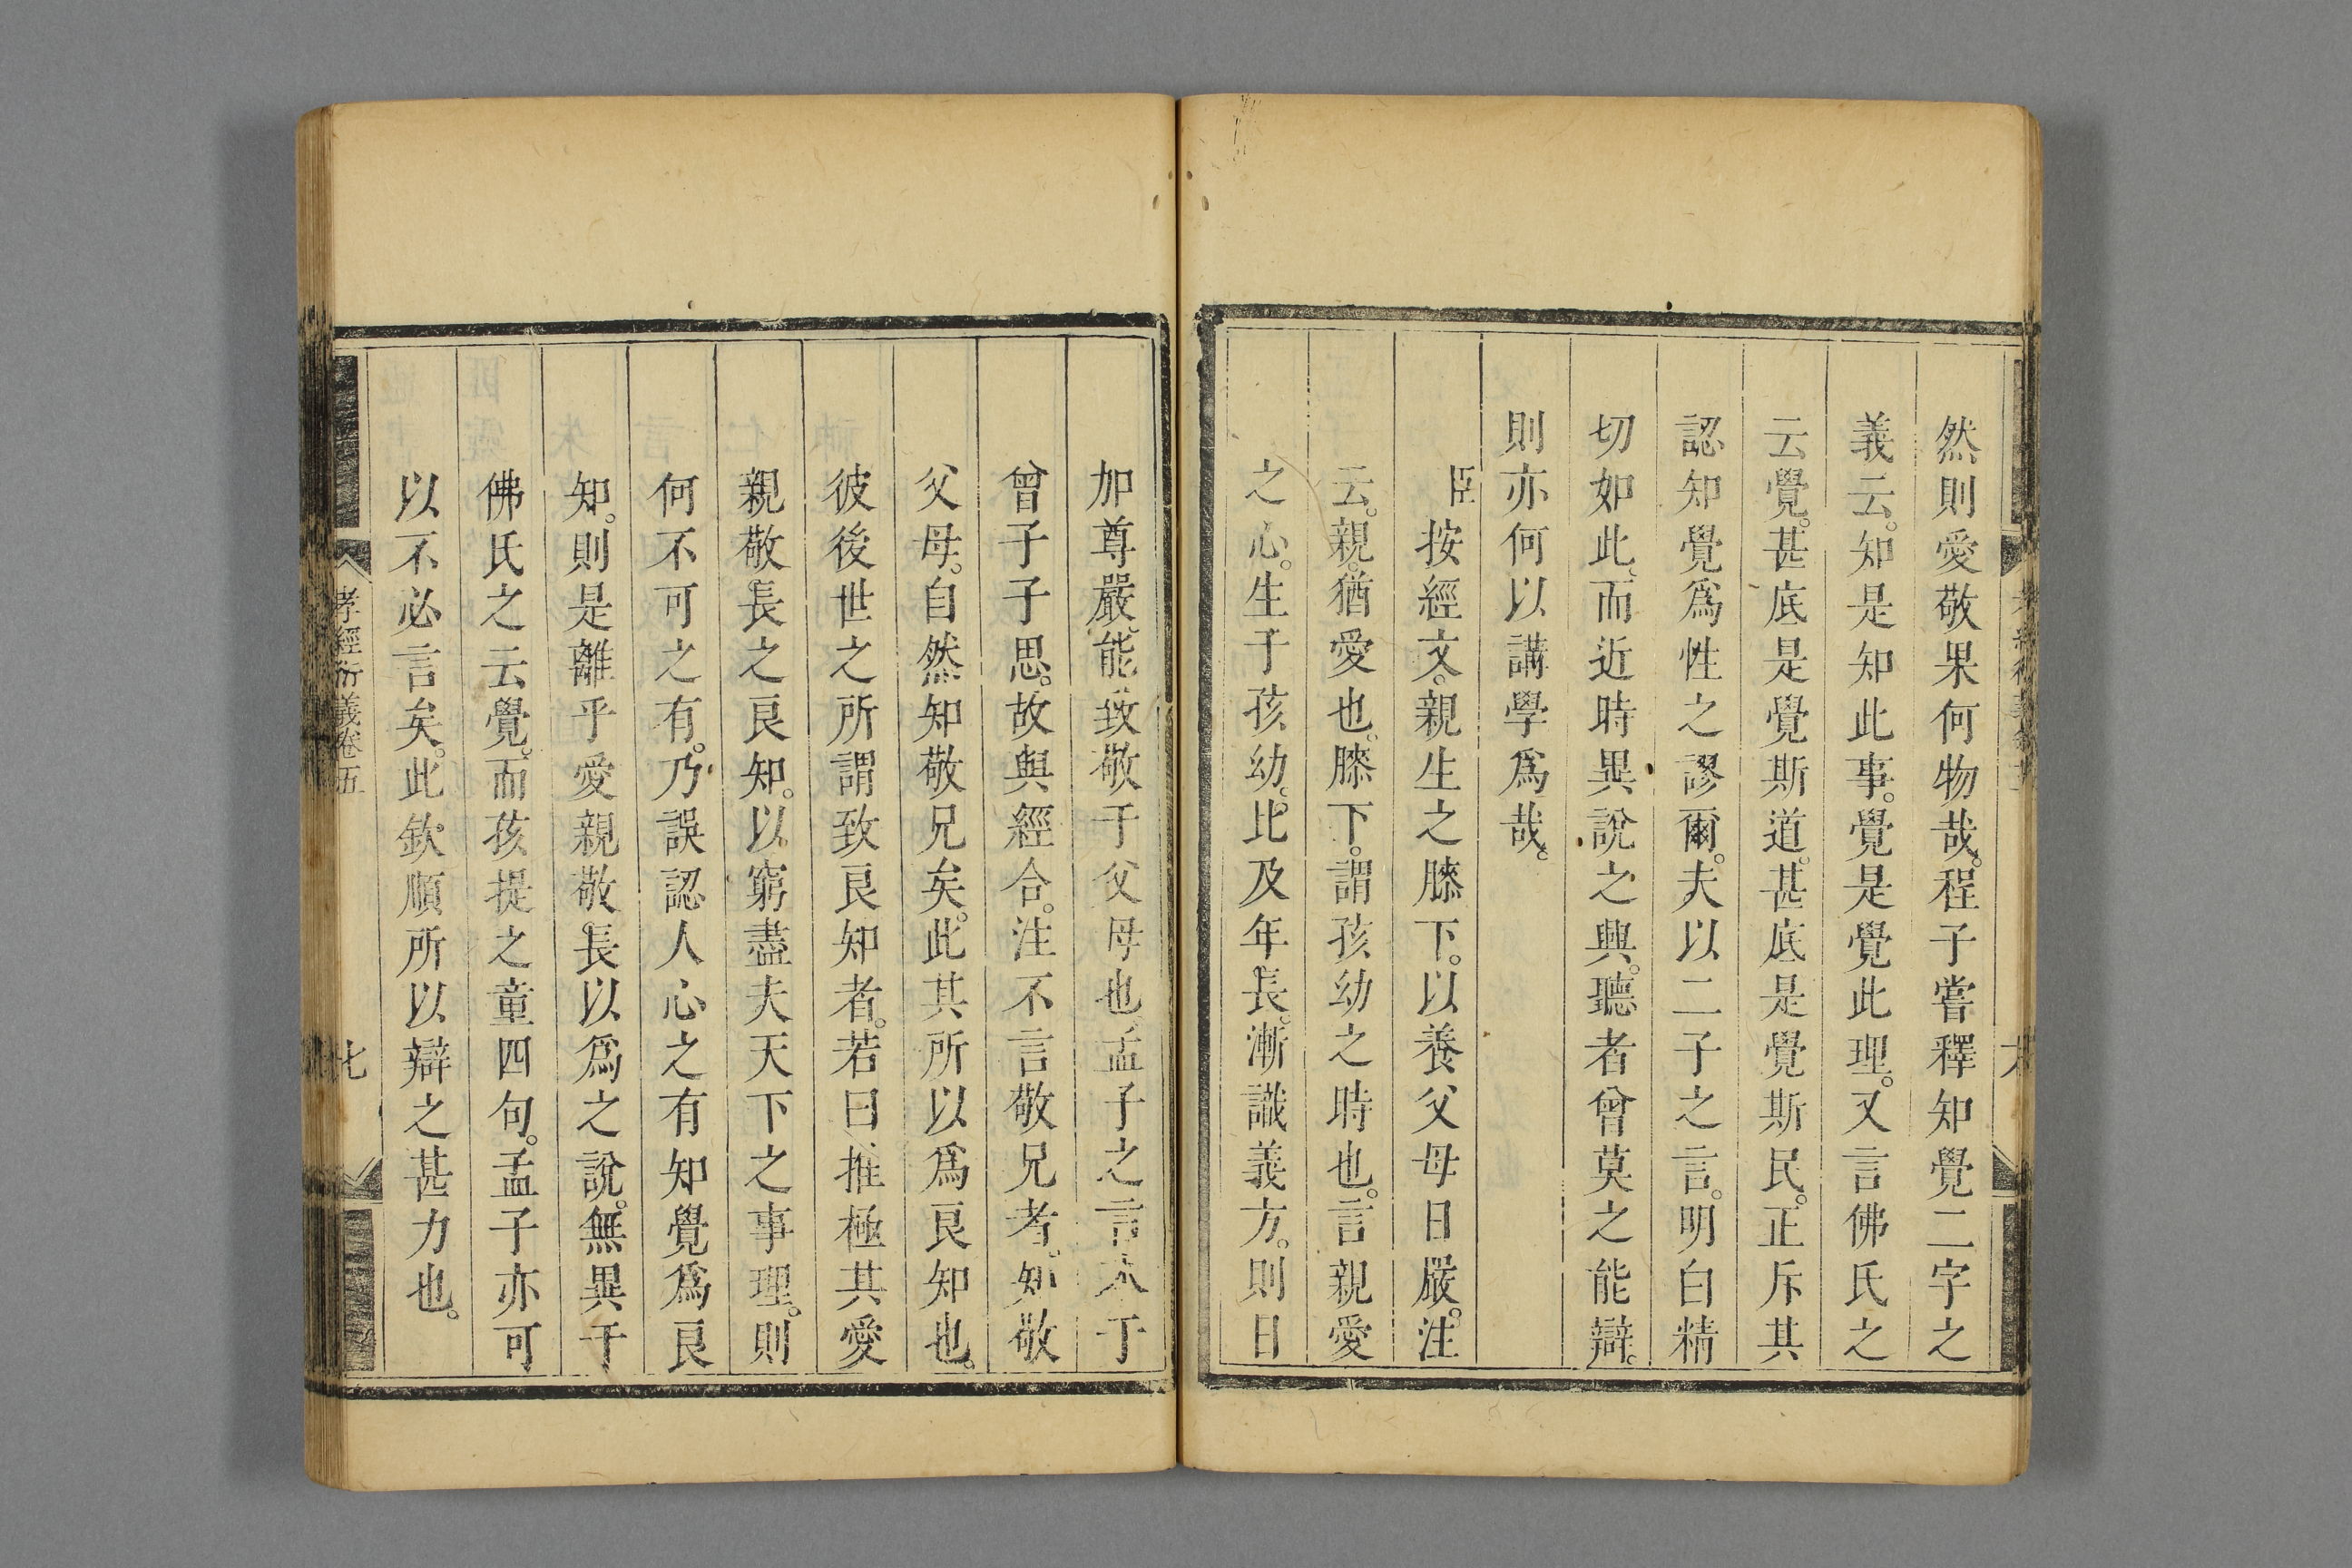 然則愛敬果何物哉。程子嘗釋知覺二字之
義云。知是知此事。覺是覺此理。又言佛氏之
云覺。甚底是覺斯道。甚底是覺斯民。正斥其
認知覺爲性之謬爾。夫以二子之言。明白精
切如此。而近時異說之興。聽者曾莫之能辯。
則亦何以講學爲哉。
臣按經文。親生之膝下。以養父母日嚴。注
云。親。猶愛也。膝下。謂孩幼之時也。言親愛
之心。生于孩幼。比及年長。漸識義方。則日
加尊嚴。能致敬于父母也。孟子之言本于
曾子子思。故與經合。注不言敬兄者。知敬
父母。自然知敬兄矣。此其所以爲良知也。
彼後世之所謂致良知者。若曰推極其愛
親敬長之良知。以窮盡夫天下之事理。則
何不可之有。乃誤認人心之有知覺爲良
知。則是離乎愛親敬長以爲之說。無異于
佛氏之云覺。而孩提之童四句。孟子亦可
以不必言矣。此欽順所以辯之甚力也。
孝經衍義卷五
七